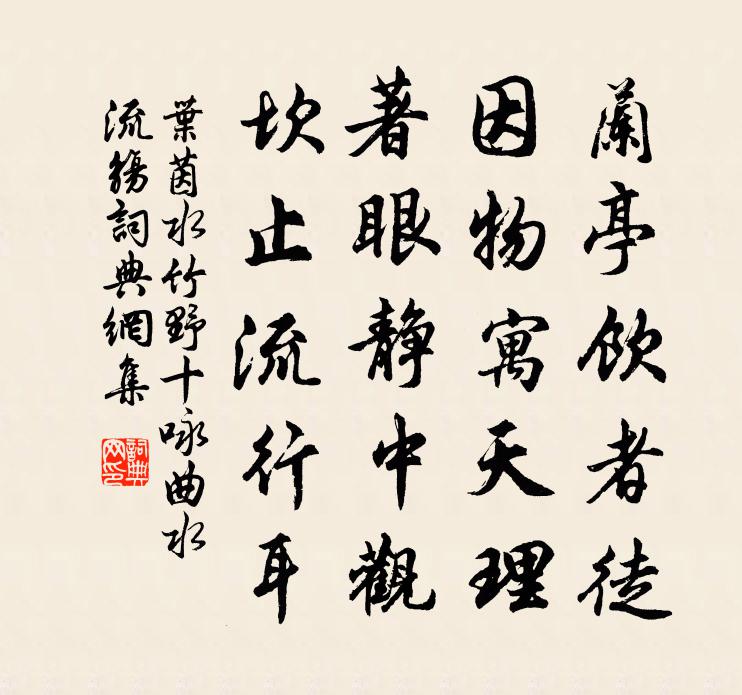 蘭亭飲者徒
因物寓天理
著眼靜中觀
坎止流行耳
葉茵水竹野十咏曲水
流觴詞典網集
詞典網印